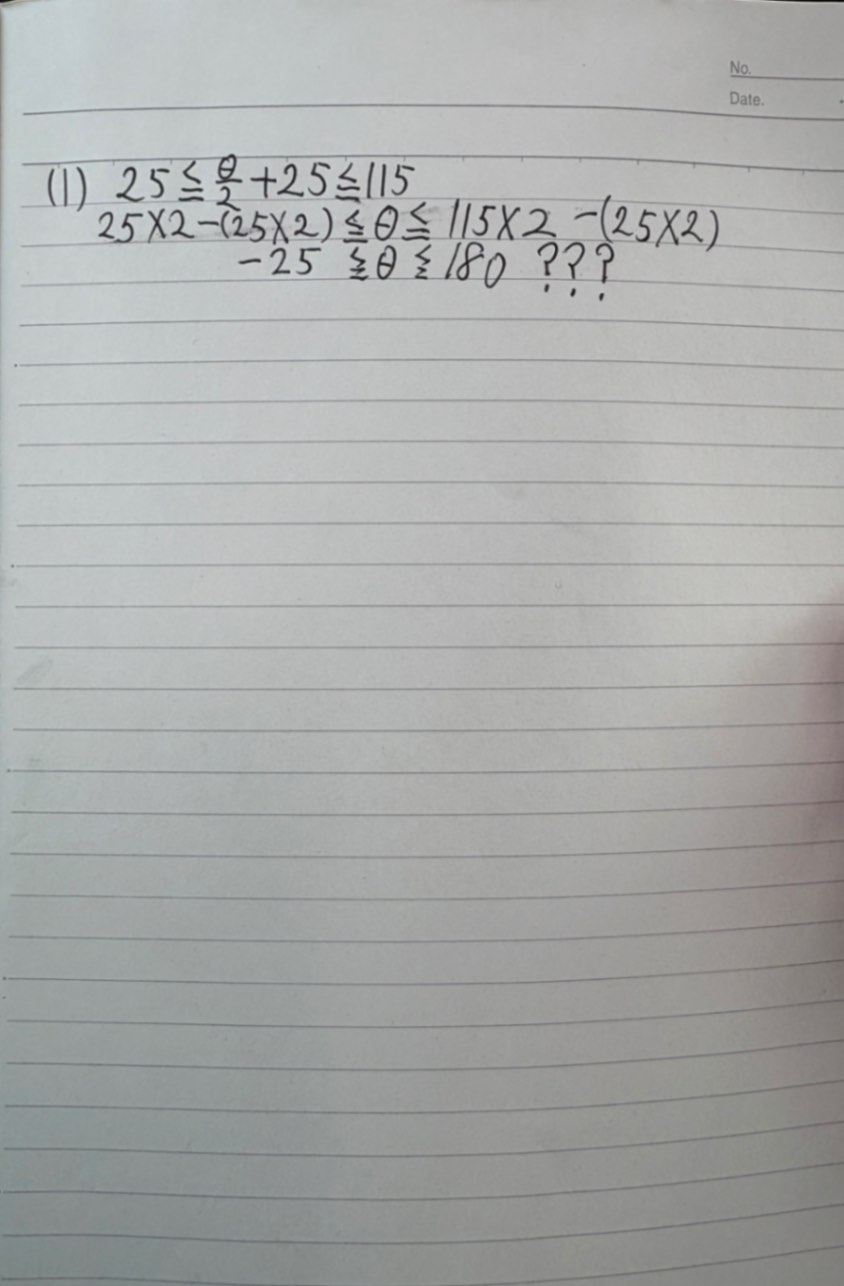 No.
Date.
(1) 25≦θ/2+25≦115
25×2-(25×2)≦θ≦115×2-(25×2)
-25≦θ≦180???